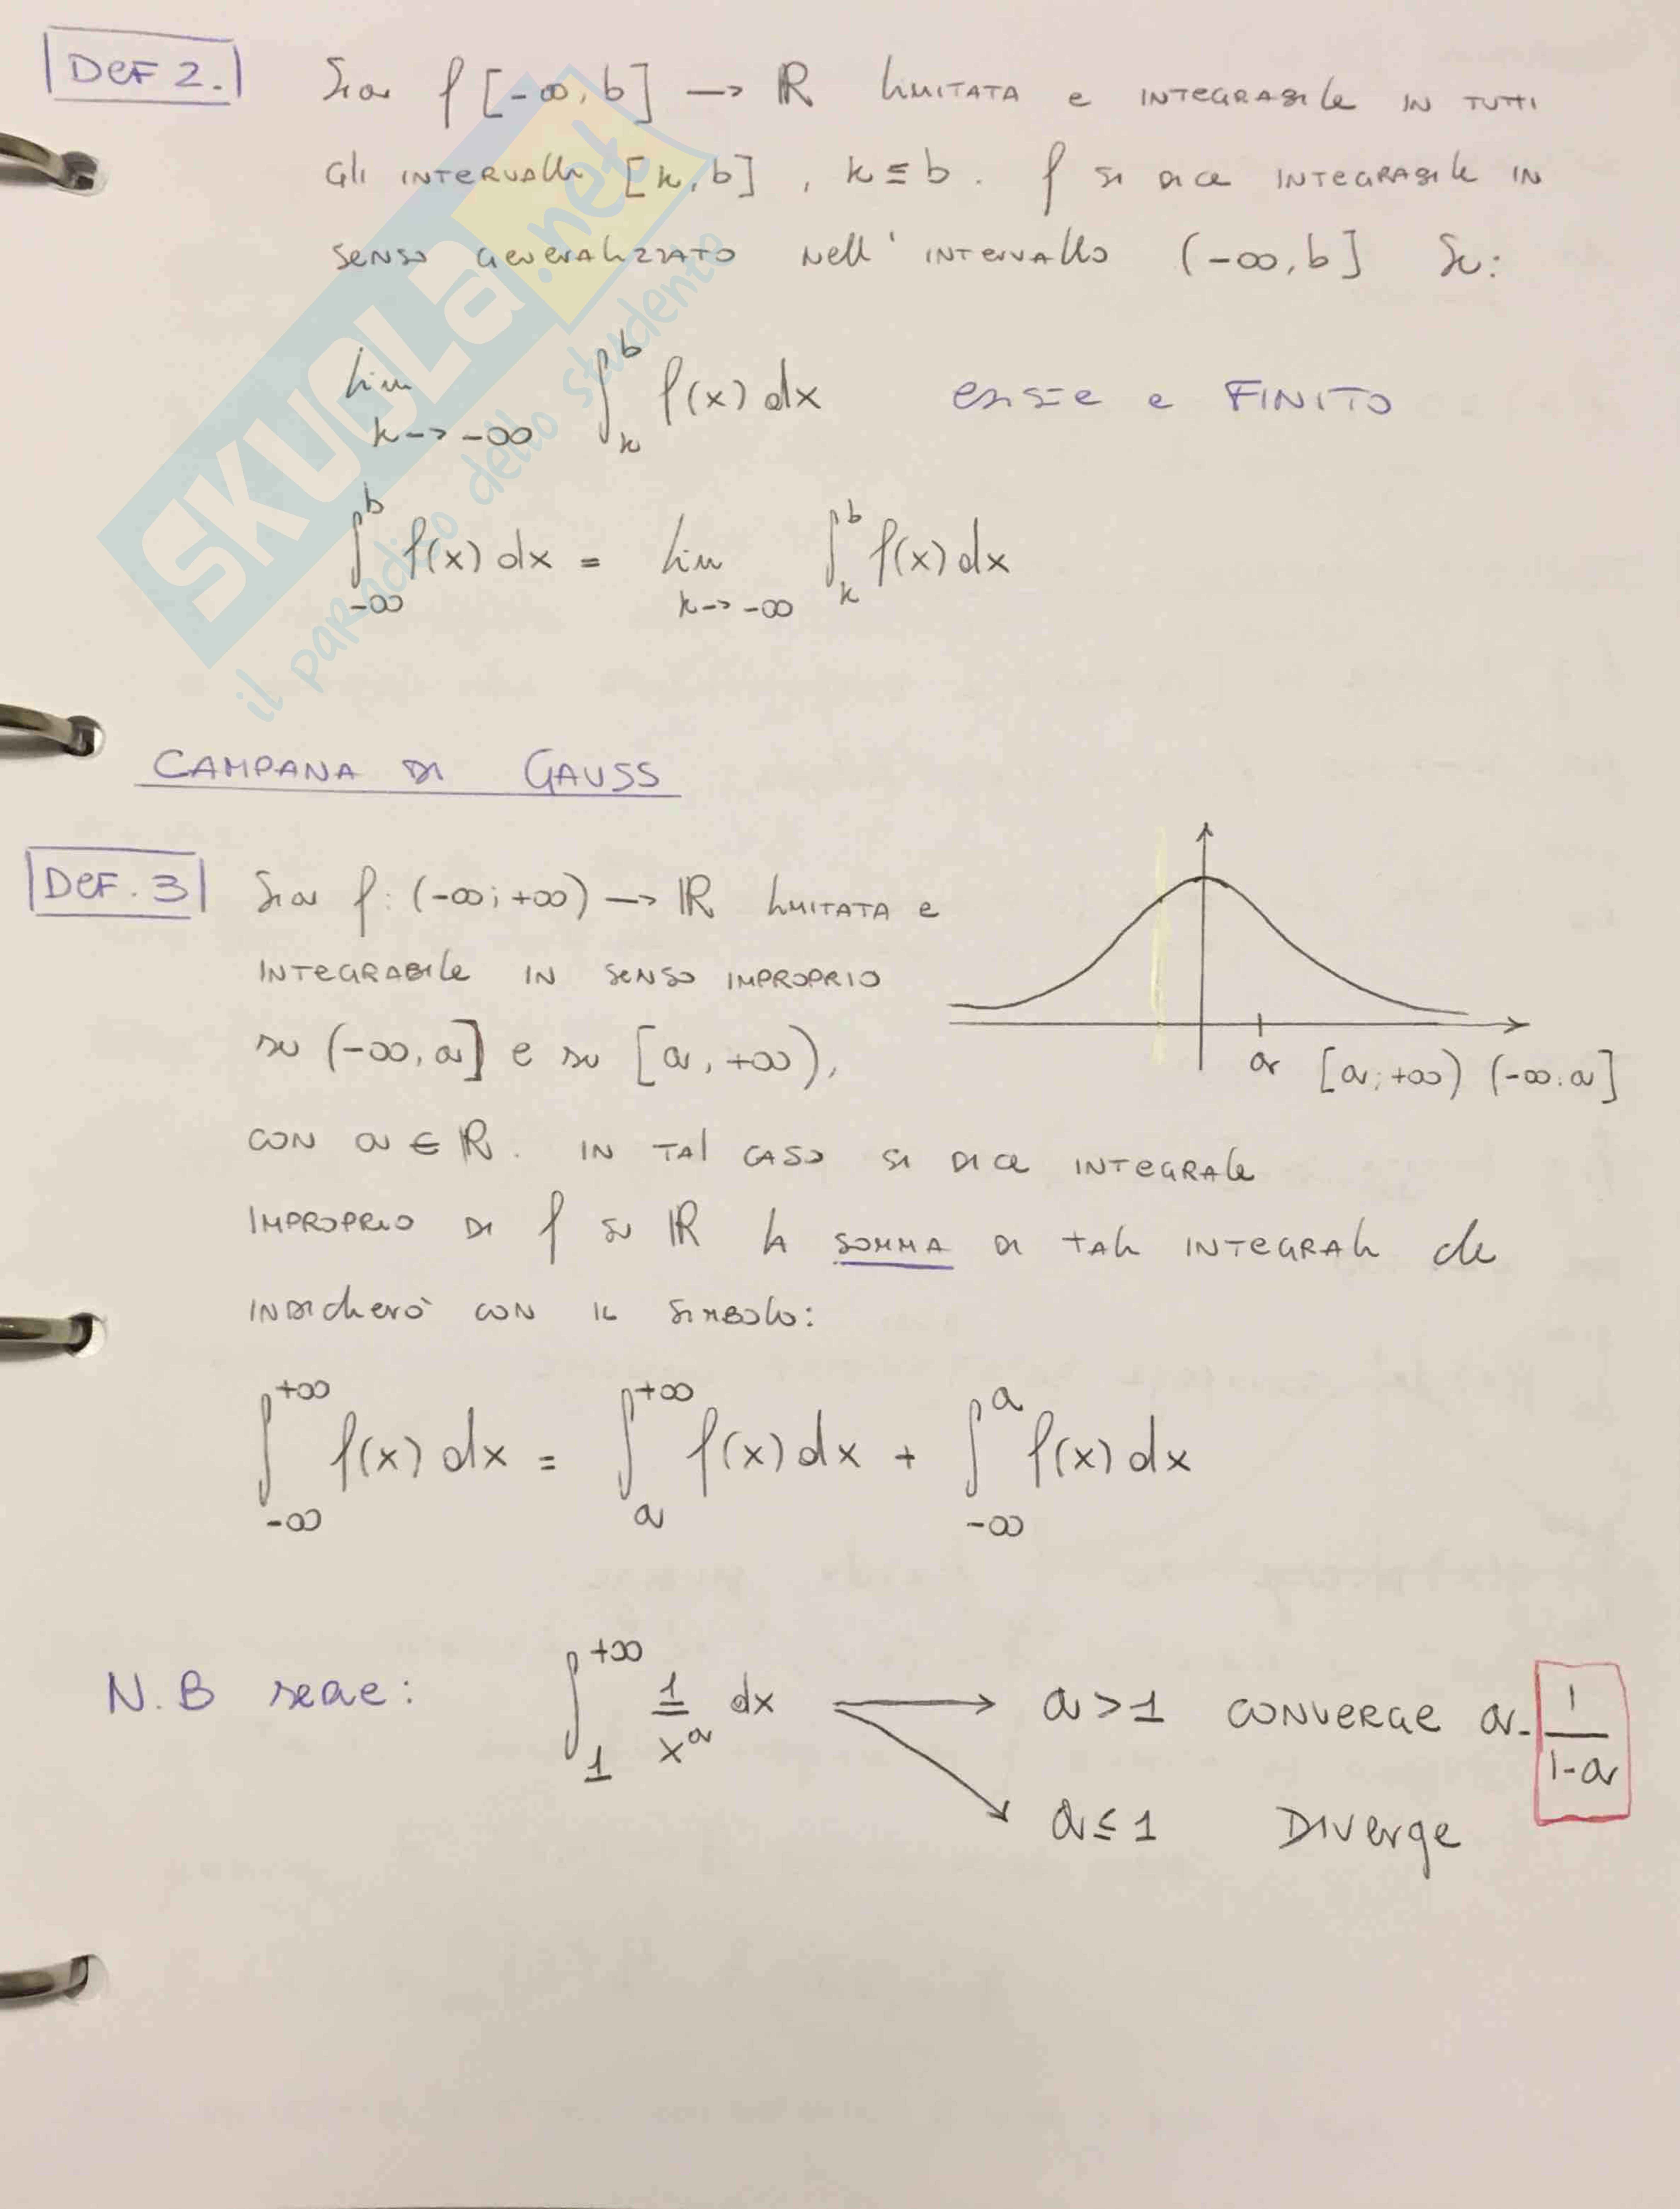 DEF 2. Sia f [-∞, b] → ℝ LIMITATA e INTEGRABILE IN TUTTI
Gli INTERVALLI [k, b] , k ≤ b . f SI DICE INTEGRABILE IN
SENSO GENERALIZZATO NELL' INTERVALLO (-∞, b] SE:
lim k→-∞ ∫_k^b f(x) dx ESISTE e FINITO
∫_{-∞}^b f(x) dx = lim k→-∞ ∫_k^b f(x) dx
SKUOLA.net
il paradiso dello studente
CAMPANA DI GAUSS
DEF. 3 Sia f: (-∞; +∞) → ℝ LIMITATA e
INTEGRABILE IN SENSO IMPROPRIO
su (-∞, a] e su [a, +∞),
a [a; +∞) (-∞. a]
CON a ∈ ℝ. IN TAL CASO SI DICE INTEGRALE
IMPROPRIO DI f SU ℝ LA SOMMA DI TALI INTEGRALI che
INDICHERÒ CON IL SIMBOLO:
∫_{-∞}^{+∞} f(x) dx = ∫_a^{+∞} f(x) dx + ∫_{-∞}^a f(x) dx
N.B ∫_1^{+∞} 1/x^a dx → a > 1 CONVERGE a. 1/1-a
→ a ≤ 1 DIVERGE